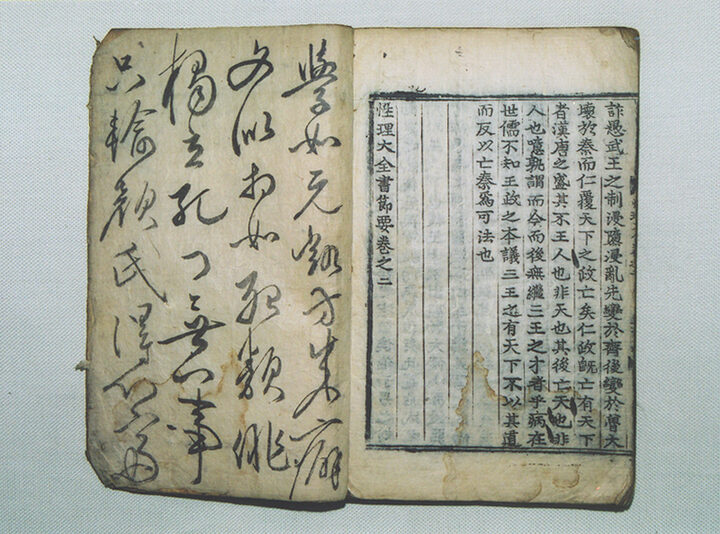 詐愚武王之制浸隳浸亂先變於齊後變於魯大
壞於秦而仁覆天下之政亡矣仁政旣亡有天下
者漢唐之盛其不王人也非天也其後亡天也非
人也噫孰謂而今而後無繼三王之才者乎病在
世儒不知王政之本議三王之有天下不以其道
而反以亡秦爲可法也
性理大全書節要卷之二
學如元凱方成癖
文似相如殆類俳
獨立孔門無一事
只輸顔氏得心齋